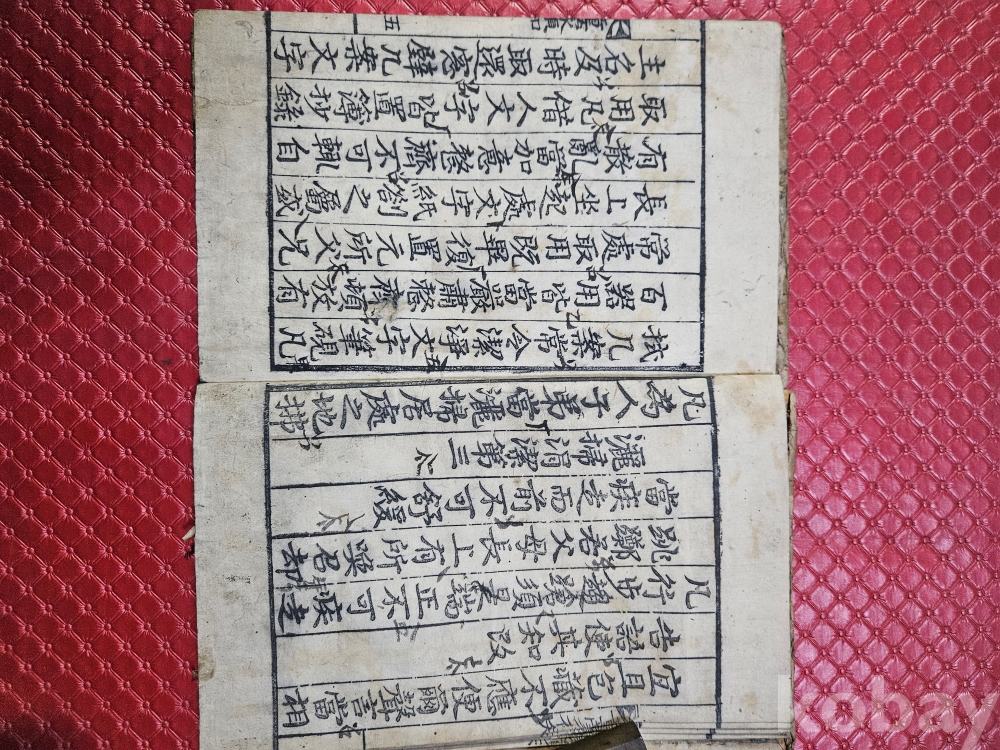 宜且包藏不應便爾聲言當相
告語使其知改
凡行步趨蹌須是端正不可疾走
跳躑若父母長上有所喚召却
當疾走而前不可舒緩
灑掃涓潔第三
凡為人子弟當灑掃居處之地拂
拭几案常令潔淨文字筆硯凡
百器用皆當嚴肅整齊頓放有
常處取用既畢復置元所父兄
長上坐起處文字紙劄之屬或
有散亂當加意整齊不可輒自
取用凡借人文字皆置簿抄錄
主名及時取還窓壁几案文字
五
kobay